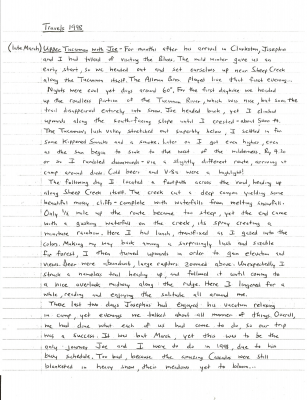 Travels 1998
(late March) Upper Tucannon with Joe - For months after his arrival in Clarkston, Josephus
and I had talked of visiting the Blues. The mild winter gave us an
early start, so we headed out and set ourselves up near Sheep Creek
along the Tucannon itself. The Allman Bros. played live that first evening...
Nights were cool yet days around 60°. For the first daytime we headed
up the roadless portion of the Tucannon River, which was nice, but soon the
trail disappeared entirely into snow. Joe headed back, yet I climbed
upwards along the south-facing slope until I crested about
The Tucannon's lush valley stretched out superbly below, I settled in for
some Kippered Snacks and a smoke. Later on I got even higher, even
as the sun began to sink to the west of the wilderness. By it
or so I rambled downward via a slightly different route, arriving at
camp around dark. Cold beers and V-8s were a highlight!
The following day I located a footpath across the road, heading up
along Sheep Creek itself. The creek cut a deep canyon yielding some
beautiful mossy cliffs - complete with waterfalls from melting snowfall.
Only ¼ mile up the route became too steep, yet the end came
with a gushing waterfall on the creek, its spray creating a
miniature rainbow. Here I had lunch, transfixed as I gazed into the
colors. Making my way back among a surprisingly lush and sizable
fir forest, I then turned upwards in order to gain elevation and
views. Deer were abundant, large raptors zoomed above. Unexpectedly, I
struck a nameless trail heading up, and followed it until coming to
a nice overlook midway along the ridge. Here I lingered for a
while, reading and enjoying the solitude all around me.
These last two days Josephus had enjoyed his vacation relaxing
in camp, yet evenings we talked about all manner of things. Overall,
we had done what each of us had come to do, so our trip
was a success. It was but March, yet this was to be the
only journey Joe and I were to do in 1998, due to his
busy schedule. Too bad, because the amazing Cascades were still
blanketed in heavy snow, their meadows yet to bloom...